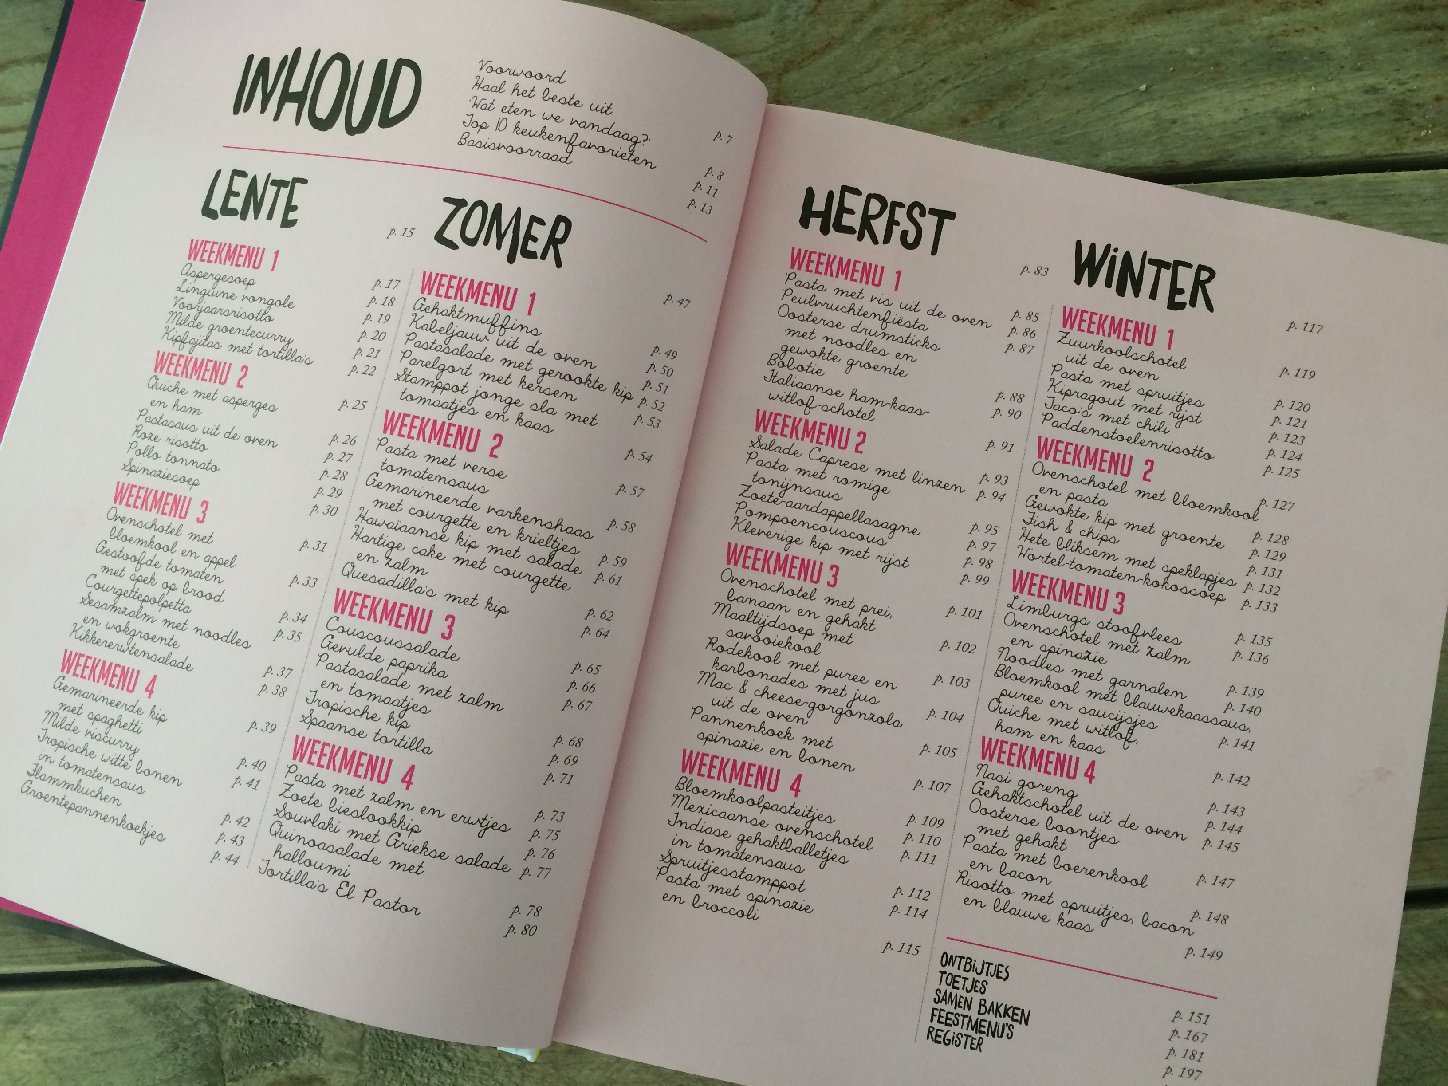 INHOUD
Voorwoord
Haal het beste uit
Wat eten we vandaag? p. 7
Top 10 keukenfavorieten
Basisvoorraad p. 8
p. 11
p. 13
LENTE p. 15
WEEKMENU 1 p. 17
Aspergesoep p. 18
Linguine vongole p. 19
Voorjaarsrisotto p. 20
Milde groentecurry p. 21
Kipfajitas met tortilla's p. 22
WEEKMENU 2
Quiche met asperges p. 25
en ham
Pastasaus uit de oven p. 26
Roze risotto p. 27
Pollo tonnato p. 28
Spinaziesoep p. 29
WEEKMENU 3 p. 30
Ovenschotel met
bloemkool en appel p. 31
Gestoofde tomaten
met spek op brood p. 33
Courgettepolpetta
Sesamzalm met noodles p. 34
en wokgroente p. 35
Kikkererwtensalade
WEEKMENU 4 p. 37
Gemarineerde kip p. 38
met spaghetti
Milde viscurry p. 39
Tropische witte bonen
in tomatensaus p. 40
Flammkuchen p. 41
Groentepannenkoekjes
p. 42
p. 43
p. 44
ZOMER
WEEKMENU 1 p. 47
Gehaktmuffins
Kabeljauw uit de oven p. 49
Pastasalade met gerookte kip p. 50
Parelgort met kersen p. 51
Stamppot jonge sla met p. 52
tomaatjes en kaas p. 53
WEEKMENU 2 p. 54
Pasta met verse
tomatensaus p. 57
Gemarineerde varkenshaas
met courgette en krieltjes p. 58
Hawaiaanse kip met salade p. 59
Hartige cake met courgette p. 61
en zalm
Quesadilla's met kip p. 62
WEEKMENU 3 p. 64
Couscoussalade
Gevulde paprika p. 65
Pastasalade met zalm p. 66
en tomaatjes p. 67
Tropische kip
Spaanse tortilla p. 68
WEEKMENU 4 p. 69
p. 71
Pasta met zalm en erwtjes p. 73
Zoete bieslookkip p. 75
Souvlaki met Griekse salade p. 76
Quinoasalade met p. 77
halloumi
Tortilla's El Pastor p. 78
p. 80
HERFST p. 83
WEEKMENU 1
Pasta met vis uit de oven p. 85
Peulvruchtenfiësta p. 86
Oosterse drumsticks p. 87
met noodles en
gewokte groente
Bobotie p. 88
Italiaanse ham-kaas- p. 90
witlof-schotel
WEEKMENU 2 p. 91
Salade Caprese met linzen p. 93
Pasta met romige p. 94
tonijnsaus
Zoete-aardappellasagne p. 95
Pompoencouscous p. 97
Kleverige kip met rijst p. 98
WEEKMENU 3 p. 99
Ovenschotel met prei,
banaan en gehakt p. 101
Maaltijdsoep met
savooiekool p. 102
Rodekool met puree en
karbonades met jus p. 103
Mac & cheese-gorgonzola
uit de oven p. 104
Pannenkoek met
spinazie en bonen p. 105
WEEKMENU 4 p. 107
Bloemkoolpasteitjes
Mexicaanse ovenschotel p. 109
Indiase gehaktballetjes p. 110
in tomatensaus p. 111
Spruitjesstamppot
Pasta met spinazie p. 112
en broccoli p. 114
p. 115
WINTER
WEEKMENU 1 p. 117
Zuurkoolschotel
uit de oven p. 119
Pasta met spruitjes
Kipragout met rijst p. 120
Taco's met chili p. 121
Paddenstoelenrisotto p. 123
WEEKMENU 2 p. 124
p. 125
Ovenschotel met bloemkool p. 127
en pasta
Gewokte kip met groente p. 128
Fish & chips p. 129
Hete bliksem met speklapjes p. 131
Wortel-tomaten-kokossoep p. 132
WEEKMENU 3 p. 133
Limburgs stoofvlees p. 135
Ovenschotel met zalm p. 136
en spinazie
Noodles met garnalen p. 139
Bloemkool met blauwekaassaus, p. 140
puree en saucijsjes
Quiche met witlof, p. 141
ham en kaas
WEEKMENU 4 p. 142
Nasi goreng p. 143
Gehaktschotel uit de oven p. 144
Oosterse boontjes p. 145
met gehakt
Pasta met boerenkool p. 147
en bacon
Risotto met spruitjes, bacon p. 148
en blauwe kaas p. 149
ONTBIJTJES
TOETJES p. 151
SAMEN BAKKEN p. 167
FEESTMENU'S p. 181
REGISTER p. 197